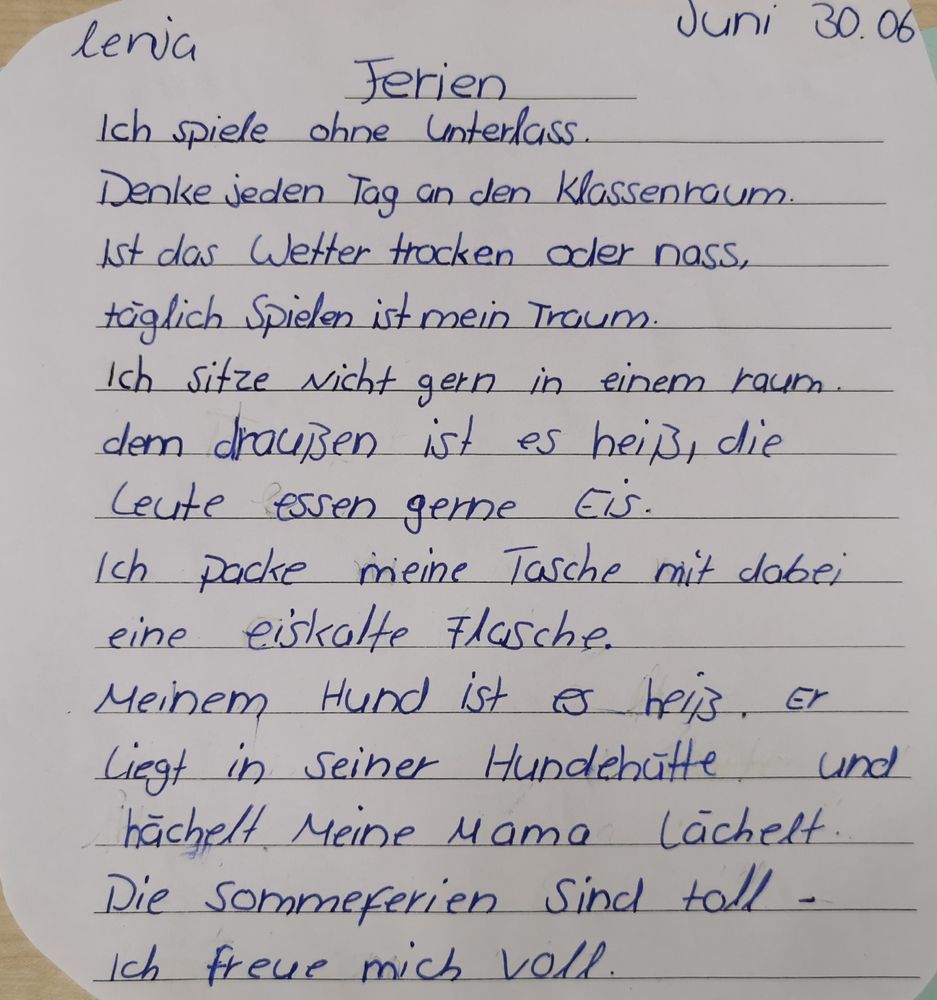 lenja
Juni 30.06
Ferien
Ich spiele ohne Unterlass.
Denke jeden Tag an den Klassenraum.
Ist das Wetter trocken oder nass,
täglich Spielen ist mein Traum.
Ich sitze Nicht gern in einem raum.
dem draußen ist es heiß, die
Leute essen gerne Eis.
Ich packe meine Tasche mit dabei
eine eiskalte Flasche.
Meinem Hund ist es heiß. Er
Liegt in seiner Hundehütte und
hächelt. Meine Mama Lächelt.
Die Sommeferien Sind toll -
Ich freue mich Voll.